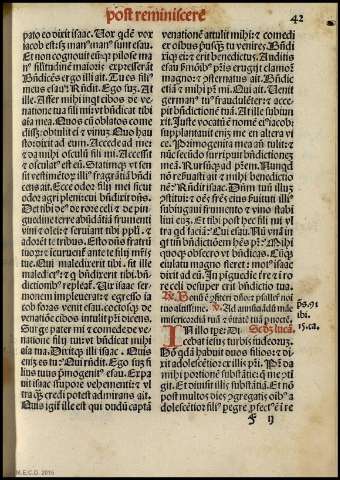 post reminiscere
42
pato eo dixit isaac. Vox qdē vox
iacob est: sz man⁹ man⁹ sunt esau.
Et non cognouit eū: qr pilose ma
n⁹ silitudinē maioris expresserāt
Bn̄dicēs ergo illi ait. Tu es fili⁹
me⁹ esau? Rn̄dit. Ego sū. At
ille. Affer mihi inqt cibos de ve
natione tua fili mi: vt bn̄dicat tibi
aīa mea. Quos cū oblatos come
disset: obtulit ei z vinū. Quo hau
sto dixit ad eum. Accede ad me:
z da mihi osculū fili mi. Accessit
z osculat⁹ est eū. Statimqz vt sen
sit vestimētoz illi⁹ fragrātiā bn̄di
cens ait. Ecce odor filij mei sicut
odor agri pleni: cui bn̄dixit dn̄s.
Det tibi de⁹ de rore celi z de pin
guedine terre abūdātiā frumenti
vini z olei: z seruiant tibi ppl'i. z
adorēt te tribus. Esto dn̄s fratrū
tuoꝝ: z incuruent̄ ante te filij mr̄is
tue. Qui maledixerit tibi. sit ille
maledict⁹: z q bn̄dixerit tibi. bn̄
dictionibꝫ repleat̄. Vix isaac ser
monem impleuerat: z egresso ia
cob foras venit esau. coctosqz de
venatiōe cibos intulit pr̄i dicens.
Surge pater mi z comede de ve
natione filij tui: vt bn̄dicat mihi
aīa tua. Dixitqz illi isaac. Quis
enim es tu? Qui rn̄dit. Ego sū fi
lius tuus p̄mogenit⁹ esau. Expa
uit isaac stupore vehementi: z vl
tra qz credi potest admirans ait.
Quis igit̄ ille est qui dudū captā
venationē attulit mihi: z comedi
ex oībus pusqz tu venires? Bn̄di
xiqz ei: z erit benedictus. Auditis
esau sermōibꝰ pr̄is irrugijt clamoꝛe
magno: z ꝯsternatus ait. Bn̄dic
etiā z mihi pr̄ mi. Qui ait. Uenit
german⁹ tu⁹ fraudulēter: z acce
pit bn̄dictionē tuā. At ille subiun
xit. Juste vocatū ē nomē ei⁹ iacob:
supplantauit enim me en altera vi
ce. Primogenita mea an̄ tulit: z
nūc secūdo surripuit bn̄dictionez
meā. Rursūqz ad pr̄em. Nunqd
nō reseruasti ait z mihi benedictio
nē? Rn̄dit isaac. Dn̄m tuū illuz
ꝯstitui: z oēs fr̄es eius seruituti illi⁹
subiugaui frumento z vino stabi
liui eum. Et tibi post hec fili mi vl
tra qd faciā? Cui esau. Nū vnā in
qt tm̄ bn̄dictiōem hēs pr̄? Mihi
quoqz obsecro vt bn̄dicas. Cūqz
eiulatu magno fleret: mot⁹ isaac
dixit ad eū. In pīguedīe terre z ī ro
re celi desuper erit bn̄dictio tua.
Re. Bonū ē ꝯfiteri dn̄o: z psallere noi
tuo altissime. V. Ad annuntiādū māe
misericordiā tuā z veritatē tuā p nocte.
ps. 91
ibi.
15. ca.
In illo tpe: Di Scd̄z lucā.
cebat iesus turbis iudeoruz.
Hō qdā habuit duos filios: z di
xit adolescētior ex illis pr̄i. Pr̄ da
mihi portionē substātie: q me ꝯtī
git. Et diuisit illis substātiā. Et nō
post multos dies ꝯgregatis oībꝰ a
dolescētior filius pegre ꝓfect⁹ ē ī re
f ij
M.E.C.D. 2016